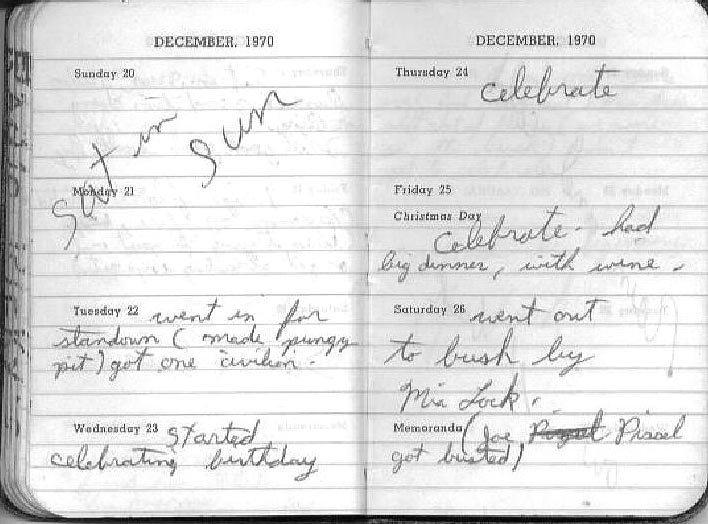 DECEMBER, 1970
Sunday 20
sat in sun
Monday 21
Tuesday 22 went in for
standown ( made pungy
pit ) got one civilian.
Wednesday 23 started
celebrating birthday
DECEMBER, 1970
Thursday 24
celebrate
Friday 25
Christmas Day
Celebrate - had
big dinner, with wine.
Saturday 26 went out
to bush by
Mia Lock.
Memoranda (Joe Pissel
got busted)